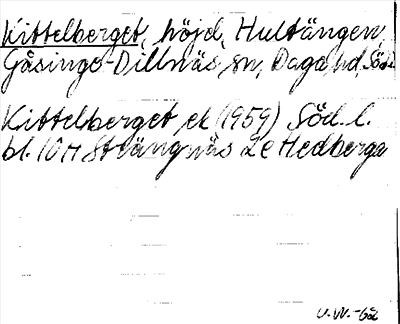 Kittelberget, höjd, Hultängen,
Gåsinge-Dillnäs sn, Daga hd, Södl.
Kittelberget ek (1959) Söd. l.
bl. 10 H Strängnäs 2e Hedberga
U.W.-62